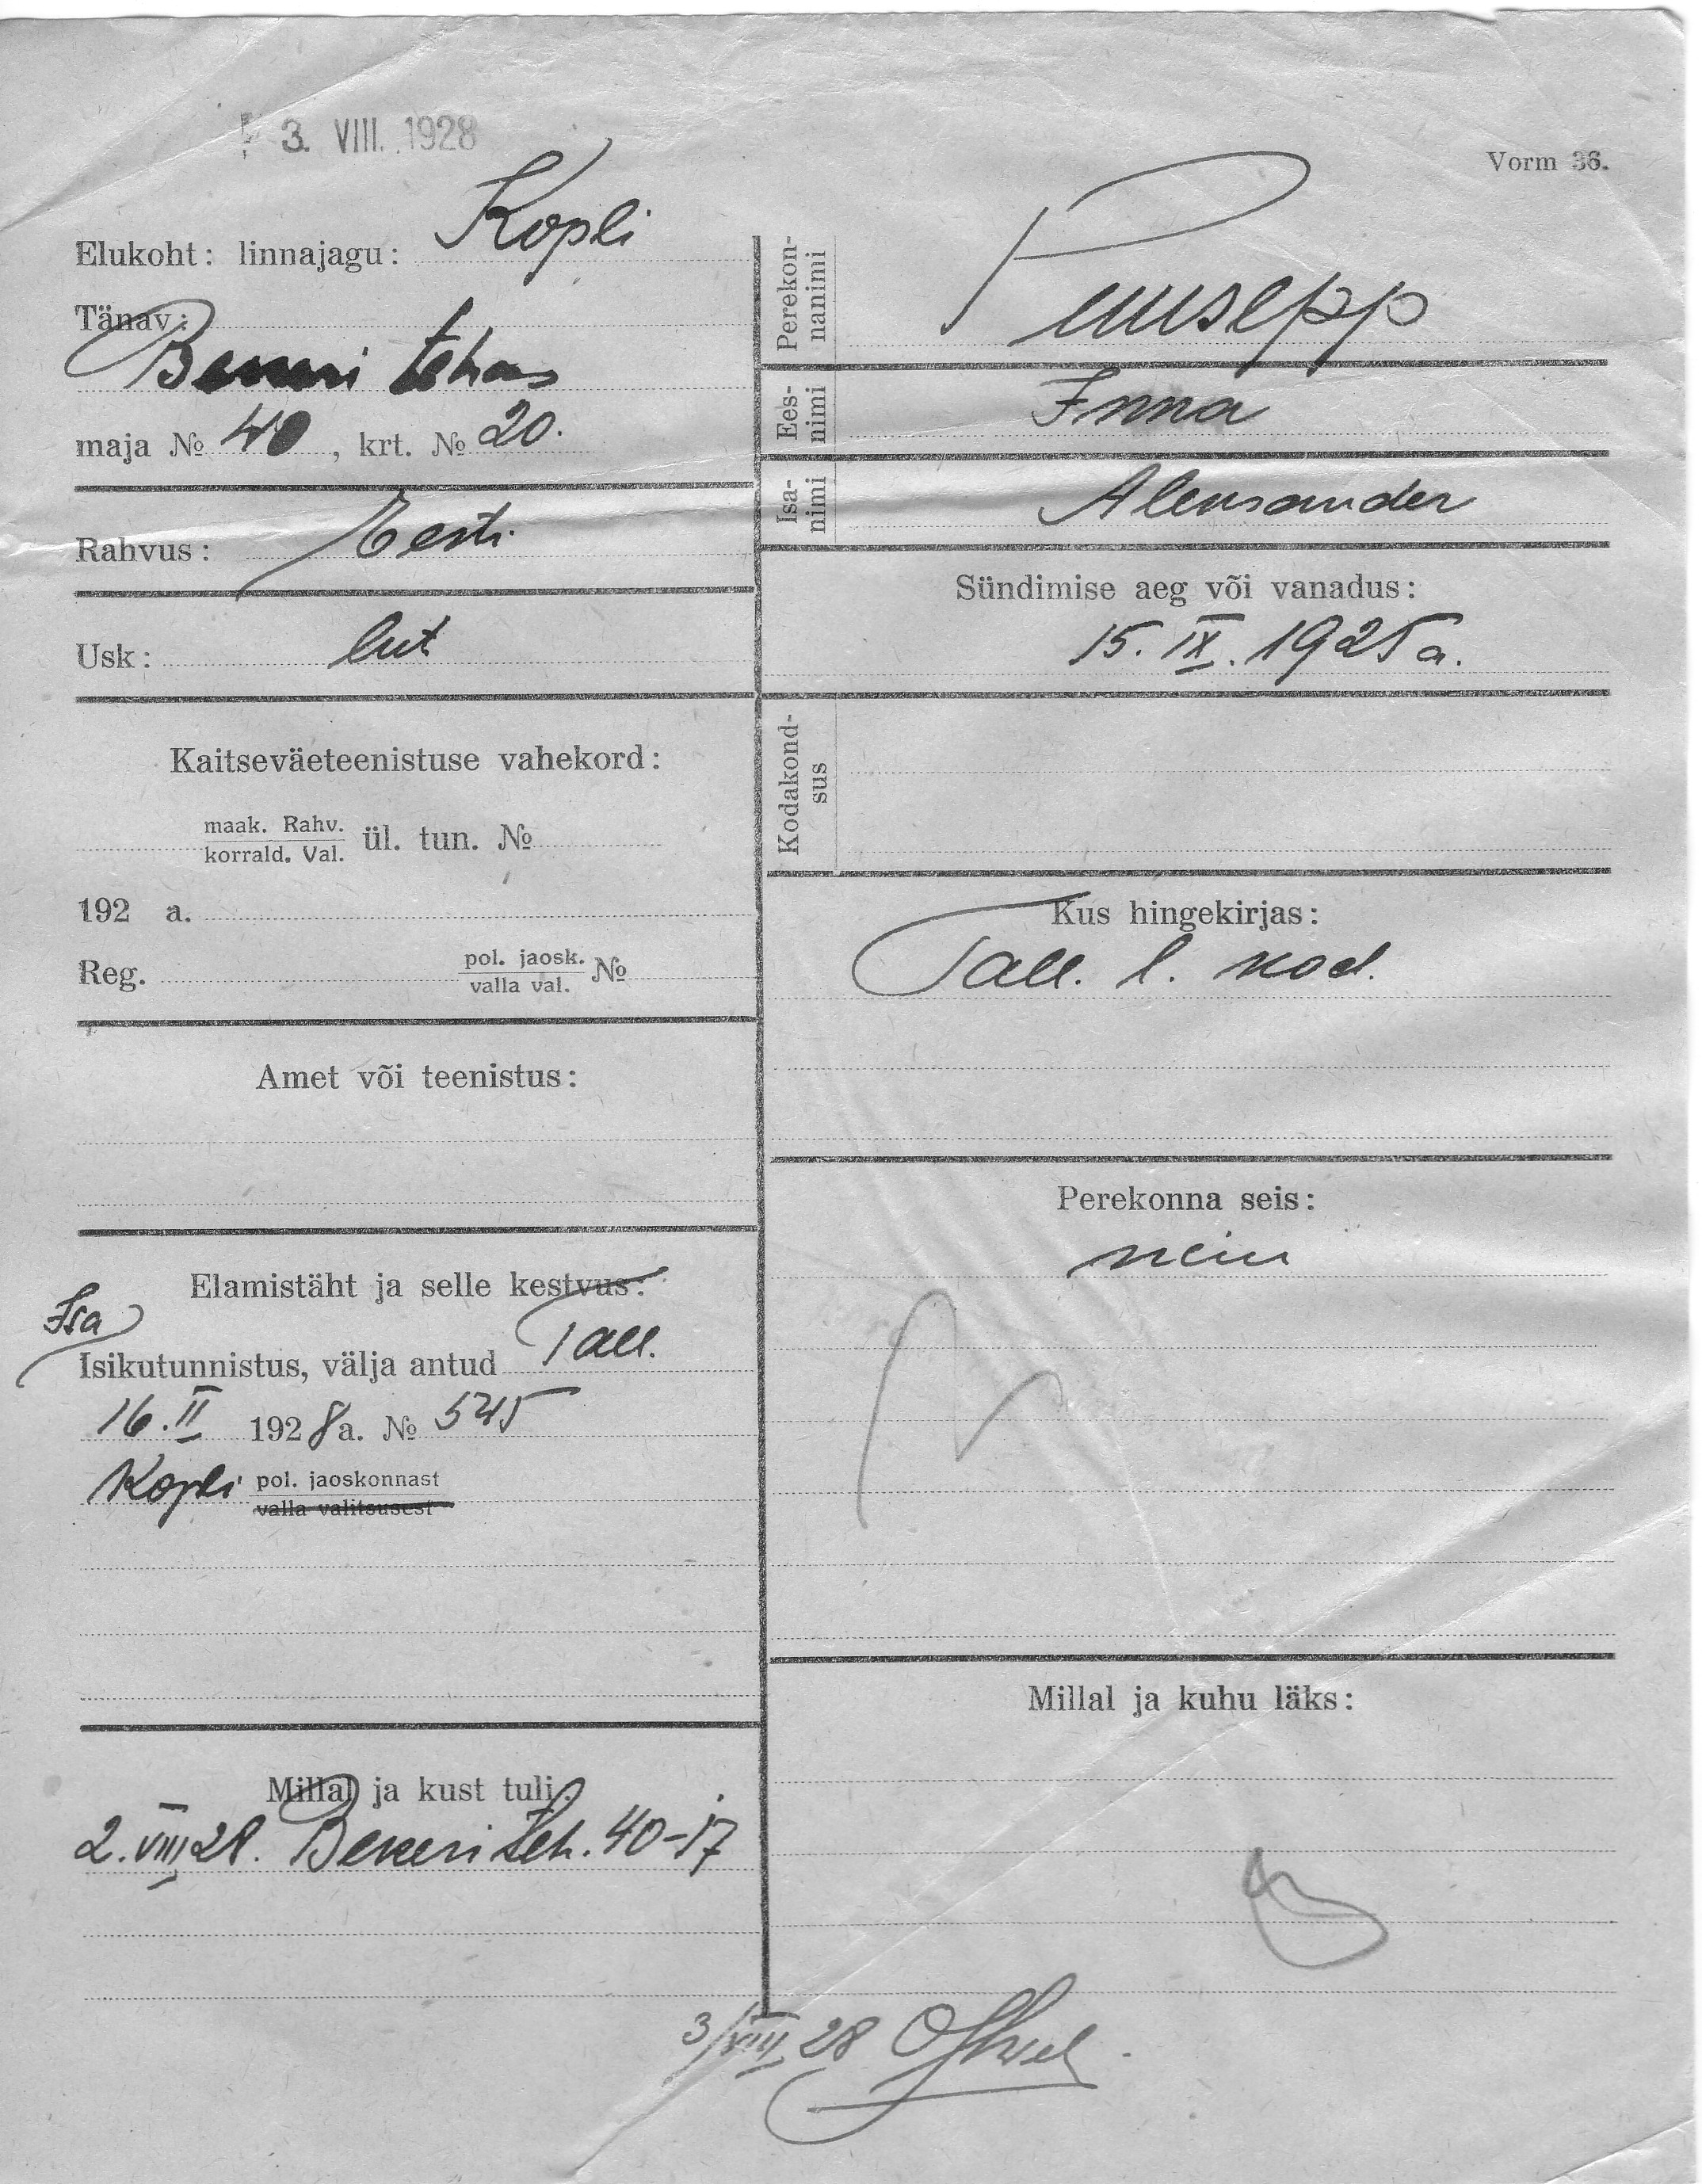 3. VIII. 1928
Vorm 36.
Elukoht: linnajagu: Kopli
Tänav:
Bekeri tehas
maja № 40, krt. № 20.
Rahvus: Eesti
Usk: lut
Kaitseväeteenistuse vahekord:
maak. Rahv.
korrald. Val. ül. tun. №
192 a.
Reg. pol. jaosk. №
valla val.
Amet või teenistus:
Elamistäht ja selle kestvus:
Isa
Isikutunnistus, välja antud Tall.
16. II 1928 a. № 545
Kopli pol. jaoskonnast
valla valitsusest
Millal ja kust tuli:
2. VIII 28. Bekeri teh. 40-17
Perekonnanimi
Puusepp
Eesnimi
Inna
Isanimi
Aleksander
Sündimise aeg või vanadus:
15. IX. 1925 a.
Kodakondsus
Kus hingekirjas:
Tall. l. kod.
Perekonna seis:
neiu
Millal ja kuhu läks:
3/VIII 28